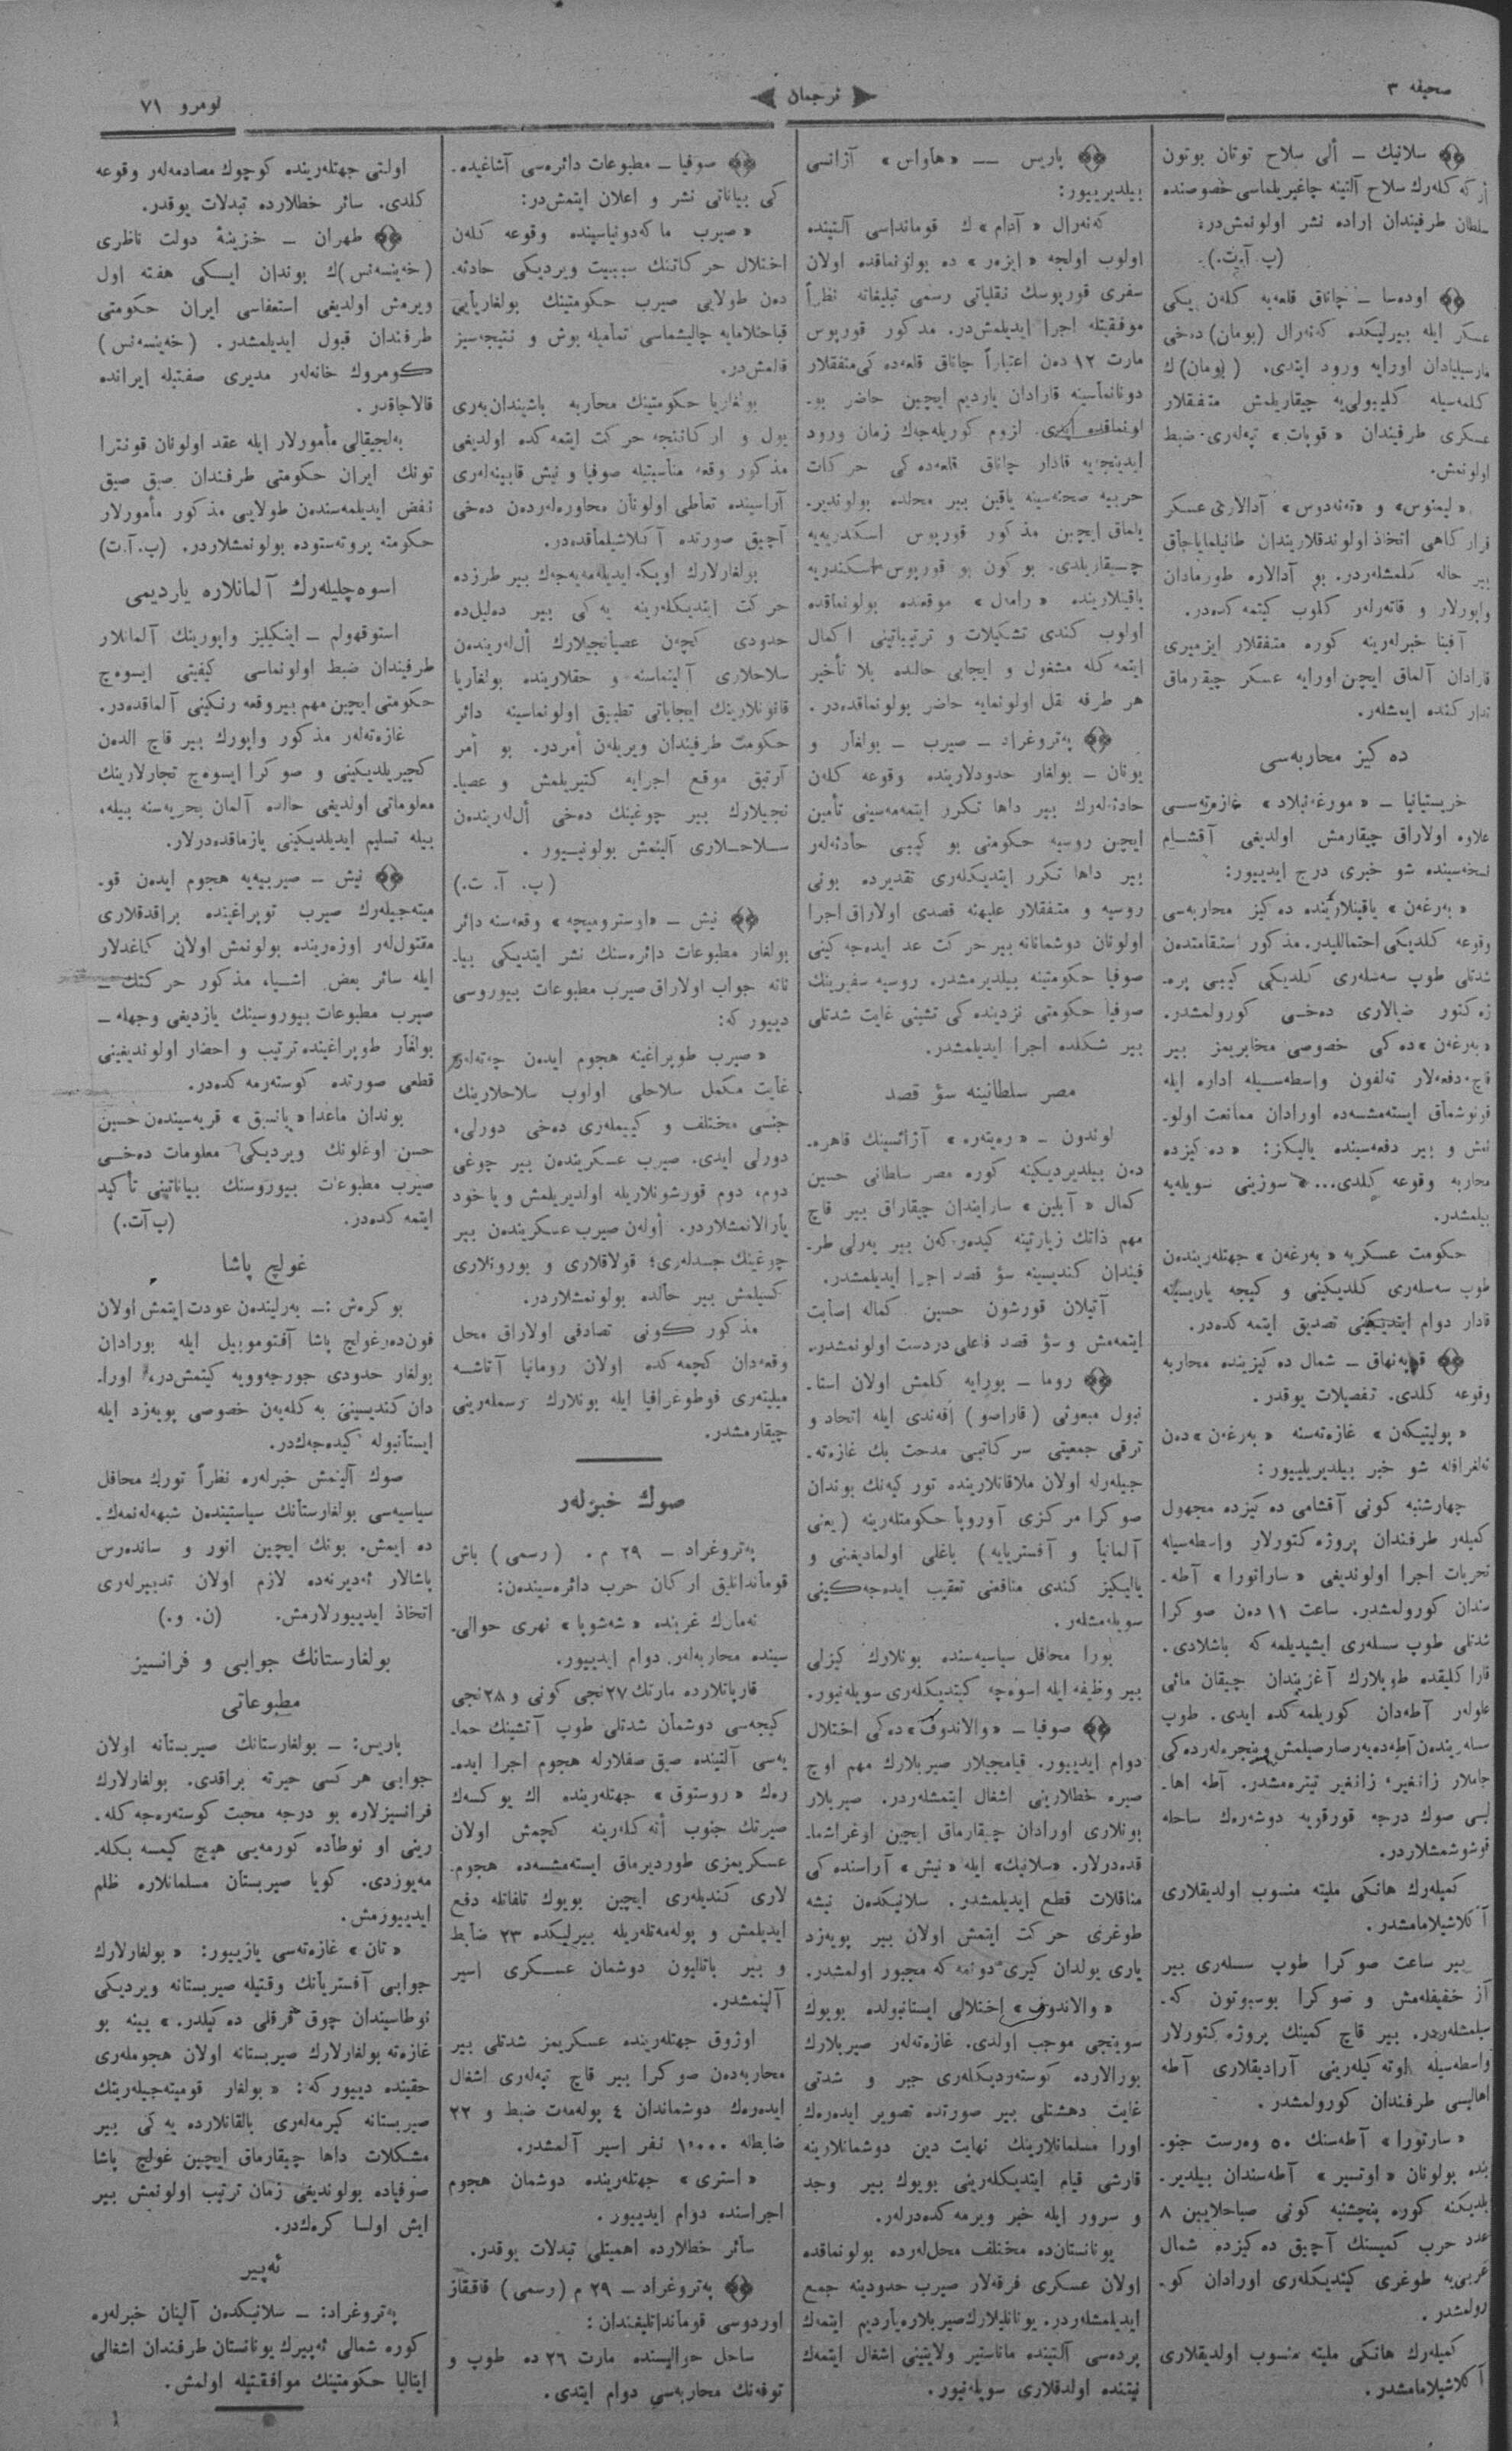 صحیفه ۳
ترجمان
نومرو ۷۱
سلانیك ــ ألی سلاح توتان بوتون
سلطان طرفیندان اراده نشر اولونمش‌در.
(پ. آ.ت.).
اوده‌سا ــ چاناق قلعه‌یه کله‌ن یکی
عسکر ایله بیرلیکده که‌نه‌رال (بومان) دخی
مارسیلیادان اورایه ورود ایتدی. (بومان)ك
کلمه‌سیله کلیبولی‌یه چیقاریلمش متفقلار
عسکری طرفیندان « قوبات » تپه‌لری ضبط
اولونمش.
« لیمنوس» و «ته‌نه‌دوس » آدالاری عسکر
قرارکاهی اتخاذ اولوندقلاریندان طانیلمایاجاق
بیر حاله کلمشله‌ردر. بو آدالاره طورمادان
واپورلار و قاته‌رله‌ر کلوب کیتمه‌کده‌در.
آفینا خبرله‌رینه کوره متفقلار ازمیری
قارادان آلماق ایچن اورایه عسکر چیقرماق
تدارکنده ایمشله‌ر.
ده‌کیز محاربه‌سی
خریستیانیا ــ « مورغه‌نبلاد » غازه‌ته‌سی
علاوه اولاراق چیقارمش اولدیغی آقشام
نسخه‌سینده شو خبری درج ایدییور:
« به‌رغه‌ن » یاقینلارینده ده‌کیز محاربه‌سی
وقوعه کلدیکی احتماللیدر. مذکور استقامتدن
شدتلی طوپ سه‌سله‌ری کلدیکی کیبی پره‌ـ
ژه‌کتور ضیالاری ده‌خی کورولمشدر.
« به‌رغه‌ن » ده‌کی خصوصی مخابریمز بیر
قاچ دفعه‌لار ته‌لفون واسطه‌سیله اداره ایله
قونوشماق ایسته‌مشسه‌ده اورادان ممانعت اولوـ
نمش و بیر دفعه‌سینده یالیکز: « ده‌کیزده
محاربه وقوعه کلدی... » سوزینی سویله‌یه
بیلمشدر.
حکومت عسکریه « به‌رغه‌ن » جهتله‌ریندەن
طوپ سه‌سله‌ری کلدیکینی و کیچه یاریسینه
قادار دوام ایتدیکینی تصدیق ایتمه‌کده‌در.
قوپه‌نهاق ــ شمال ده‌کیزینده محاربه
وقوعه کلدی. تفصیلات یوقدر.
« پولیتیکه‌ن » غازه‌ته‌سنه « به‌رغه‌ن » دەن
ته‌لغرافله شو خبر بیلدیریلییور:
چهارشنبه کونی آقشامی ده‌کیزده مجهول
کمیله‌ر طرفندان پروژه‌کتورلار واسطه‌سیله
تحریات اجرا اولوندیغی « سارانورا » آطه‌ـ
سندان کورولمشدر. ساعت ۱۱ دەن صوکرا
شدتلی طوپ سسله‌ری ایشیدیلمه‌که باشلادی.
قاراکلیقده طوپلارك آغزیندان چیقان مائی
علوله‌ر آطه‌دان کوریلمه‌کده ایدی. طوپ
جاملار زانغیر زانغیر تیتره‌مشدر. آطه اهاـ
لیسی صوك درجه قورقویه دوشه‌ره‌ك ساحله
قوشوشمشلاردر.
کمیله‌رك هانکی ملیته منسوب اولدیقلاری
آکلاشیلامامشدر.
بیر ساعت صوکرا طوپ سسله‌ری بیر
آز خفیفله‌مش و صوکرا بوسبوتون که‌ـ
سیلمشله‌ردر. بیر قاچ کمینك پروژه‌کتورلار
واسطه‌سیله اوته‌کیله‌رینی آرادیقلاری آطه
اهالیسی طرفندان کورولمشدر.
« سارتورا » آطه‌سنك ۵۰ وه‌رست جنوـ
بنده بولونان « اوتسیر » آطه‌سندان بیلدیرـ
یلدیکنه کوره پنجشنبه کونی صباحلایین ۸
عدد حرب کمیسنك آچیق ده‌کیزده شمال
غربی‌یه طوغری کیتدیکله‌ری اورادان کوـ
رولمشدر.
کمیله‌رك هانکی ملیته منسوب اولدیقلاری
آکلاشیلامامشدر.
پاریس ــ « هاواس » آژانسی
بیلدیرییور:
که‌نه‌رال « آدام » ك قوماندا‌سی آلتینده
اولوب اولجه « ایزه‌ر » ده بولونماقده اولان
سفری قورپوسك نقلیاتی رسمی تبلیغاته نظراً
موفقیتله اجرا ایدیلمش‌در. مذکور قورپوس
مارت ۱۲ دەن اعتباراً چاناق قلعه‌ده‌کی متفقلار
دونانماسینه قارادان یاردیم ایچین حاضر بوـ
لونماقده ایدی. لزوم کوریله‌جه‌ك زمان ورود
ایدینجیه قادار چاناق قلعه‌ده‌کی حرکات
حربیه صحنه‌سینه یاقین بیر محلده بولوندیرـ
یلماق ایچین مذکور قورپوس اسکندریه‌یه
چیقاریلدی. بوکون بو قورپوس اسکندریه
یاقینلارینده « رامل » موقعنده بولونماقده
اولوب کندی تشکیلات و ترتیباتینی اکمال
ایتمه‌کله مشغول و ایجابی حالده بلا تأخیر
هر طرفه نقل اولونمایه حاضر بولونماقده‌در.
په‌تروغراد ــ صیرب ــ بولغار و
یونان ــ بولغار حدودلارینده وقوعه کله‌ن
حادثه‌له‌رك بیر داها تکرر ایتمه‌مه‌سینی تأمین
ایچن روسیه حکومتی بو کیبی حادثه‌له‌ر
بیر داها تکرر ایتدیکله‌ری تقدیرده بونی
روسیه و متفقلار علیهنه قصدی اولاراق اجرا
اولونان دوشمانانه بیر حرکت عد ایده‌جه‌کینی
صوفیا حکومتینه بیلدیرمشدر. روسیه سفیرینك
صوفیا حکومتی نزدینده‌کی تشبثی غایت شدتلی
بیر شکلده اجرا ایدیلمشدر.
مصر سلطانینه سؤ قصد
لوندون ــ « ره‌یته‌ره » آژانسینك قاهره‌ـ
دەن بیلدیردیکینه کوره مصر سلطانی حسین
کمال « آبدین » سارایندان چیقاراق بیر قاچ
مهم ذاتك زیارتینه کیده‌رکه‌ن بیر یه‌رلی طرـ
فیندان کندیسینه سؤ قصد اجرا ایدیلمشدر.
آتیلان قورشون حسین کماله اصابت
ایتمه‌مش و سؤ قصد فاعلی دردست اولونمشدر.
روما ــ بورایه کلمش اولان استاـ
نبول مبعوثی (قاراصو) افه‌ندی ایله اتحاد و
ترقی جمعیتی سرکاتبی مدحت بك غازه‌ته‌ـ
جیله‌رله اولان ملاقاتلارینده تورکیه‌نك بوندان
صوکرا مرکزی آوروپا حکومتله‌رینه (یعنی
آلمانیا و آفستریایه) باغلی اولمادیغنی و
یالیکیز کندی منافعنی تعقیب ایده‌جه‌کینی
سویله‌مشله‌ر.
بورا محافل سیاسیه‌سنده بونلارك کیزلی
بیر وظیفه ایله اسوه‌چه کیتدیکله‌ری سویله‌نیور.
صوفیا ــ « والاندوف » ده‌کی اختلال
دوام ایدییور. قیامجیلار صیربلارك مهم اوچ
صیره خطلارینی اشغال ایتمشله‌ردر. صیربلار
بونلاری اورادان چیقارماق ایچین اوغراشماـ
قده‌درلار. « سلانیك » ایله « نیش » آراسنده‌کی
مناقلات قطع ایدیلمشدر. سلانیکدەن نیشه
طوغری حرکت ایتمش اولان بیر پویه‌زد
یاری یولدان کیری دونمه‌که مجبور اولمشدر.
« والاندوف » اختلالی ایستانبولده بویوك
سوینچی موجب اولدی. غازه‌ته‌له‌ر صیربلارك
بورالارده کوسته‌ردیکله‌ری جبر و شدتی
غایت دهشتلی بیر صورتده تصویر ایده‌ره‌ك
اورا مسلمانلارینك نهایت دین دوشمانلارینه
قارشی قیام ایتدیکله‌رینی بویوك بیر وجد
و سرور ایله خبر ویرمه‌کده‌درله‌ر.
یونانستان‌ده مختلف محل‌له‌رده بولونماقده
اولان عسکری فرقه‌لار صیرب حدودینه جمع
ایدیلمشله‌ردر. یونانلیلارك صیربلاره یاردیم ایتمه‌ك
پرده‌سی آلتینده ماناستیر ولایتینی اشغال ایتمه‌ك
نیتنده اولدقلاری سویله‌نیور.
صوفیا ــ مطبوعات دائره‌سی آشاغیده‌ـ
کی بیاناتی نشر و اعلان ایتمش‌در:
« صیرب ماکه‌دونیاسینده وقوعه کله‌ن
اختلال حرکاتنك سببیت ویردیکی حادثه‌ـ
دەن طولایی صیرب حکومتینك بولغاریایی
قباحتلامایه چالیشماسی تمامیله بوش و نتیجه‌سیز
قالمش‌در.
بولغاریا حکومتینك محاربه باشیندان‌به‌ری
یول و ارکاننجه حرکت ایتمه‌کده اولدیغی
مذکور وقعه مناسبتیله صوفیا و نیش قابینه‌له‌ری
آراسینده تعاطی اولونان محاوره‌له‌ردەن ده‌خی
آچیق صورتده آکلاشیلماقده‌در.
حرکت ایتدیکله‌رینه یه‌کی بیر دلیل‌ده
حدودی کچه‌ن عصیانجیلارك أل‌له‌ریندەن
سلاحلاری آلینماسنه و حقلارینده بولغاریا
قانونلارینك ایجاباتی تطبیق اولونماسینه دائر
حکومت طرفیندان ویریله‌ن أمردر. بو أمر
آرتیق موقع اجرایه کتیریلمش و عصیاـ
نجیلارك بیر چوغینك ده‌خی أل‌له‌ریندەن
سلاحلاری آلینمش بولونییور.
(پ. آ. ت.)
نیش ــ « اوسترومیچه » وقعه‌سنه دائر
بولغار مطبوعات دائره‌سنك نشر ایتدیکی بیاـ
ناته جواب اولاراق صیرب مطبوعات بیوروسی
دییور که:
« صیرب طوپراغینه هجوم ایدەن چه‌ته‌له‌ر
غایت مکمل سلاحلی اولوب سلاحلارینك
جنسی مختلف و کییمله‌ری ده‌خی دورلی
دورلی ایدی. صیرب عسکریندەن بیر چوغی
دوم، دوم قورشونلاریله اولدیریلمش و یاخود
یارالانمشلاردر. أوله‌ن صیرب عسکریندەن بیر
چوغینك جسدله‌ری؛ قولاقلاری و بورونلاری
کسیلمش بیر حالده بولونمشلاردر.
مذکور کونی تصادفی اولاراق محل
وقعه‌دان کچمه‌کده اولان رومانیا آتاشه
میلیته‌ری فوطوغرافیا ایله بونلارك رسمله‌رینی
چیقارمشدر.
صوك خبرله‌ر
په‌تروغراد ــ ۲۹ م. (رسمی) باش
قوماندانلیق ارکان حرب دائره‌سیندەن:
نه‌مانك غربنده « شه‌شوپا » نهری حوالیـ
سینده محاربه‌له‌ر دوام ایدییور.
قارپاتلارده مارتك ۲۷نجی کونی و ۲۸نجی
کیجه‌سی دوشمان شدتلی طوپ آتشینك حماـ
یه‌سی آلتینده صیق صفلارله هجوم اجرا ایده‌ـ
ره‌ك « روستوق » جهتله‌رینده اك یوکسك
صیرتك جنوب أته‌کله‌رینه کچمش اولان
عسکریمزی طوردیرماق ایسته‌مشسه‌ده هجومـ
لاری کندیله‌ری ایچین بویوك تلفاتله دفع
ایدیلمش و پوله‌مه‌تله‌ریله بیرلیکده ۲۳ ضابط
و بیر باتالیون دوشمان عسکری اسیر
آلینمشدر.
اوژوق جهتله‌رینده عسکریمز شدتلی بیر
محاربه‌دەن صوکرا بیر قاچ تپه‌لری اشغال
ایده‌ره‌ك دوشماندان ٤ پوله‌مه‌ت ضبط و ۲۲
ضابطله ۱۰۰۰ نفر اسیر آلمشدر.
« استری » جهتله‌رینده دوشمان هجوم
اجراسنده دوام ایدییور.
سائر خطلارده اهمیتلی تبدلات یوقدر.
په‌تروغراد ــ ۲۹ م (رسمی) قافقاز
اوردوسی قوماندانلیغندان:
ساحل حوالیسنده مارت ۲٦ ده طوپ و
توفه‌نك محاربه‌سی دوام ایتدی.
اولتی جهتله‌رینده کوچوك مصادمه‌له‌ر وقوعه
کلدی. سائر خطلارده تبدلات یوقدر.
طهران ــ خزینهٔ دولت ناظری
(خه‌ینسه‌نس)ك بوندان ایکی هفته اول
ویرمش اولدیغی استعفاسی ایران حکومتی
طرفندان قبول ایدیلمشدر. (خه‌ینسه‌نس)
کومروك خانه‌له‌ر مدیری صفتیله ایرانده
قالاجاقدر.
به‌لجیقالی مأمورلار ایله عقد اولونان قونتراـ
تونك ایران حکومتی طرفندان صیق صیق
نقض ایدیلمه‌سندەن طولایی مذکور مأمورلار
حکومته پروته‌ستوده بولونمشلاردر. (پ.آ.ت)
اسوه‌چلیله‌رك آلمانلاره یاردیمی
استوقهولم ــ اینکیلیز واپورینك آلمانلار
طرفیندان ضبط اولونماسی کیفیتی ایسوه‌چ
حکومتی ایچین مهم بیر وقعه رنکینی آلماقده‌در.
غازه‌ته‌له‌ر مذکور واپورك بیر قاچ الدەن
کچیریلدیکینی و صوکرا ایسوه‌چ تجارلارینك
معلوماتی اولدیغی حالده آلمان بحریه‌سنه بیله‌
بیله تسلیم ایدیلدیکینی یازماقده‌درلار.
نیش ــ صیربیه‌یه هجوم ایدەن قوـ
میته‌جیله‌رك صیرب توپراغینده براقدقلاری
مقتول‌له‌ر اوزه‌رینده بولونمش اولان کاغدلار
ایله سائر بعض اشیا، مذکور حرکتك ــ
صیرب مطبوعات بیوروسینك یازدیغی وجهله ــ
بولغار طوپراغینده ترتیب و احضار اولوندیغینی
قطعی صورتده کوسته‌رمه‌کده‌در.
بوندان ماعدا « پانسبق » قریه‌سیندەن حسین
حسن اوغلونك ویردیکی معلومات ده‌خی
صیرب مطبوعات بیوروسنك بیاناتینی تأکید
ایتمه‌کده‌در. (پ آ ت.)
غولچ پاشا
بوکره‌ش :ــ به‌رلیندەن عودت ایتمش اولان
فون‌ده‌رغولچ پاشا آفتوموبیل ایله بورادان
بولغار حدودی جورجه‌وویه کیتمش‌در، اوراـ
دان کندیسینی به‌کله‌یه‌ن خصوصی پویه‌زد ایله
ایستانبوله کیده‌جه‌ك‌در.
صوك آلینمش خبرله‌ره نظراً تورك محافل
سیاسیه‌سی بولغارستانك سیاستیندەن شبهه‌له‌نمه‌کـ
ده ایمش. بونك ایچین انور و ساندەرس
پاشالار ئه‌دیرنه‌ده لازم اولان تدبیرله‌ری
اتخاذ ایدییورلارمش. (ن. و.)
بولغارستانك جوابی و فرانسیز
مطبوعاتی
پاریس: ــ بولغارستانك صیربستانه اولان
جوابی هر کسی حیرته براقدی. بولغارلارك
فرانسیزلاره بو درجه محبت کوسته‌ره‌جه‌کله‌ـ
رینی او نوطاده کورمه‌یی هیچ کیمسه بکله‌ـ
مه‌یوزدی. کویا صیربستان مسلمانلاره ظلم
ایدییورمش.
« تان » غازه‌ته‌سی یازییور: « بولغارلارك
جوابی آفستریانك وقتیله صیربستانه ویردیکی
نوطاسیندان چوق فرقلی ده‌کیلدر. » یینه بو
غازه‌ته بولغارلارك صیربستانه اولان هجومله‌ری
حقینده دییورکه: « بولغار قومیته‌جیله‌رینك
صیربستانه کیرمه‌له‌ری بالقانلارده یه‌کی بیر
مشکلات داها چیقارماق ایچین غولچ پاشا
صوفیاده بولوندیغی زمان ترتیب اولونمش بیر
ایش اولسا کره‌ك‌در.
ئه‌پیر
په‌تروغراد: ــ سلانیکدەن آلینان خبرله‌ره
کوره شمالی ئه‌پیرك یونانستان طرفندان اشغالی
ایتالیا حکومتینك موافقتیله اولمش.